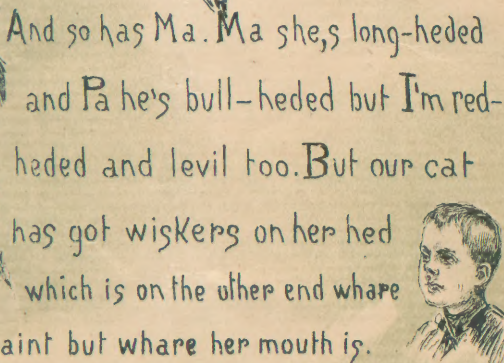 And so has Ma. Ma she,s long-heded
and Pa he's bull-heded but I'm red-
heded and levil too. But our cat
has got wiskers on her hed
which is on the uther end whare
aint but whare her mouth is.